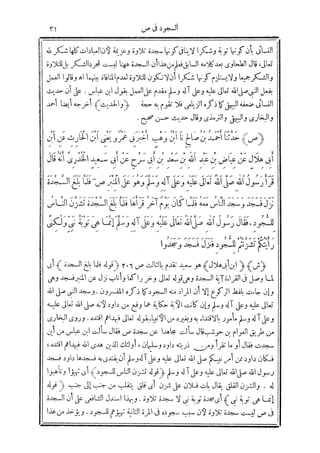 السجود في ص ٣١
النسائي بأن كونها توبة وشكرا لا ينافي كونها سجدة تلاوة وعزيمة لأن العبادات كلها شكر لله
تعالى. قال الطحاوي بعد كلامه السابق فعلم من هذا أن السجدة ههنا ليست لمجرد الشكر بل للتلاوة
والشكر جميعا ولا يستلزم كونها شكرا أن لا تكون للتلاوة لعدم المنافاة بينهما اه وقالوا العمل
بفعل النبي صلى الله تعالى عليه وعلى آله وسلم مقدم على العمل بقول ابن عباس. على أن حديث
النسائي ضعفه البيهقي كما ذكره الزيلعي فلا تقوم به حجة ﴿والحديث﴾ أخرجه أيضا أحمد
والبخاري والبيهقي والترمذي وقال حديث حسن صحيح.
﴿ص﴾ حَدَّثَنَا أَحْمَدُ بْنُ صَالِحٍ نَا ابْنُ وَهْبٍ أَخْبَرَنِي عَمْرٌو يَعْنِي ابْنَ الْحَارِثِ عَنِ ابْنِ
أَبِي هِلَالٍ عَنْ عِيَاضِ بْنِ عَبْدِ اللهِ بْنِ سَعْدِ بْنِ أَبِي سَرْحٍ عَنْ أَبِي سَعِيدٍ الْخُدْرِيِّ أَنَّهُ قَالَ
قَرَأَ رَسُولُ اللهِ صَلَّى اللهُ تَعَالَى عَلَيْهِ وَعَلَى آلِهِ وَسَلَّمَ وَهُوَ عَلَى الْمِنْبَرِ صٓ فَلَمَّا بَلَغَ السَّجْدَةَ
نَزَلَ فَسَجَدَ وَسَجَدَ النَّاسُ مَعَهُ فَلَمَّا كَانَ يَوْمٌ آخَرُ قَرَأَهَا فَلَمَّا بَلَغَ السَّجْدَةَ تَشَزَّنَ النَّاسُ
لِلسُّجُودِ، فَقَالَ رَسُولُ اللهِ صَلَّى اللهُ تَعَالَى عَلَيْهِ وَعَلَى آلِهِ وَسَلَّمَ إِنَّمَا هِيَ تَوْبَةُ نَبِيٍّ وَلَكِنِّي
رَأَيْتُكُمْ تَشَزَّنْتُمْ لِلسُّجُودِ فَنَزَلَ فَسَجَدَ وَسَجَدُوا
﴿ش﴾ ﴿ابن أبي هلال﴾ هو سعيد تقدم بالثالث ص ٢٠٦ ﴿قوله فلما بلغ السجدة﴾ أي
لما وصل في القراءة آية السجدة وهي قوله تعالى وخر راكعا وأناب نزل عن المنبر فسجد وهي
وإن جاءت بلفظ الركوع إلا أن المراد منه السجود كما ذكره المفسرون. وسجد النبي صلى الله
تعالى عليه وعلى آله وسلم وإن كانت الآية حكاية عما وقع من داود لأنه صلى الله تعالى عليه
وعلى آله وسلم مأمور بالاقتداء به وبغيره من الأنبياء بقوله تعالى فبهداهم اقتده. وروى البخاري
من طريق العوام بن حوشب قال سألت مجاهدا عن سجدة ص فقال سألت ابن عباس من أين
سجدت فقال أو ما تقرأ ومن ذريته داود وسليمان، أولئك الذين هدى الله فبهداهم اقتده،
فكان داود ممن أمر نبيكم صلى الله تعالى عليه وعلى آله وسلم أن يقتدي به فسجدها داود فسجدها
رسول الله صلى الله تعالى عليه وعلى آله وسلم ﴿قوله تشزن الناس للسجود﴾ أي تهيؤا وتأهبوا
له. والشزن القلق يقال بات فلان على شزن أي قلق يتقلب من جنب إلى جنب ﴿قوله
إنما هي توبة نبي﴾ أي سجدة توبة نبي لا سجدة تلاوة. وبهذا استدل الشافعي على أن السجدة
في ص ليست سجدة تلاوة لأن سبب سجوده في المرة الثانية تهيؤهم للسجود. ويؤخذ من هذا